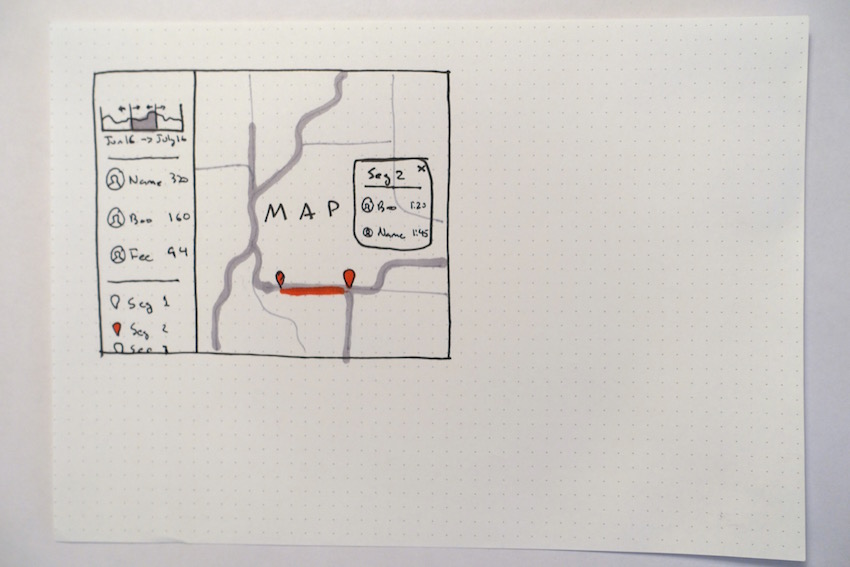 Jun16 -> July16
Name 320
Boo 160
Fee 94
Seg 1
Seg 2
Seg 3
MAP
Seg 2 x
Boo 1:20
Name 1:45